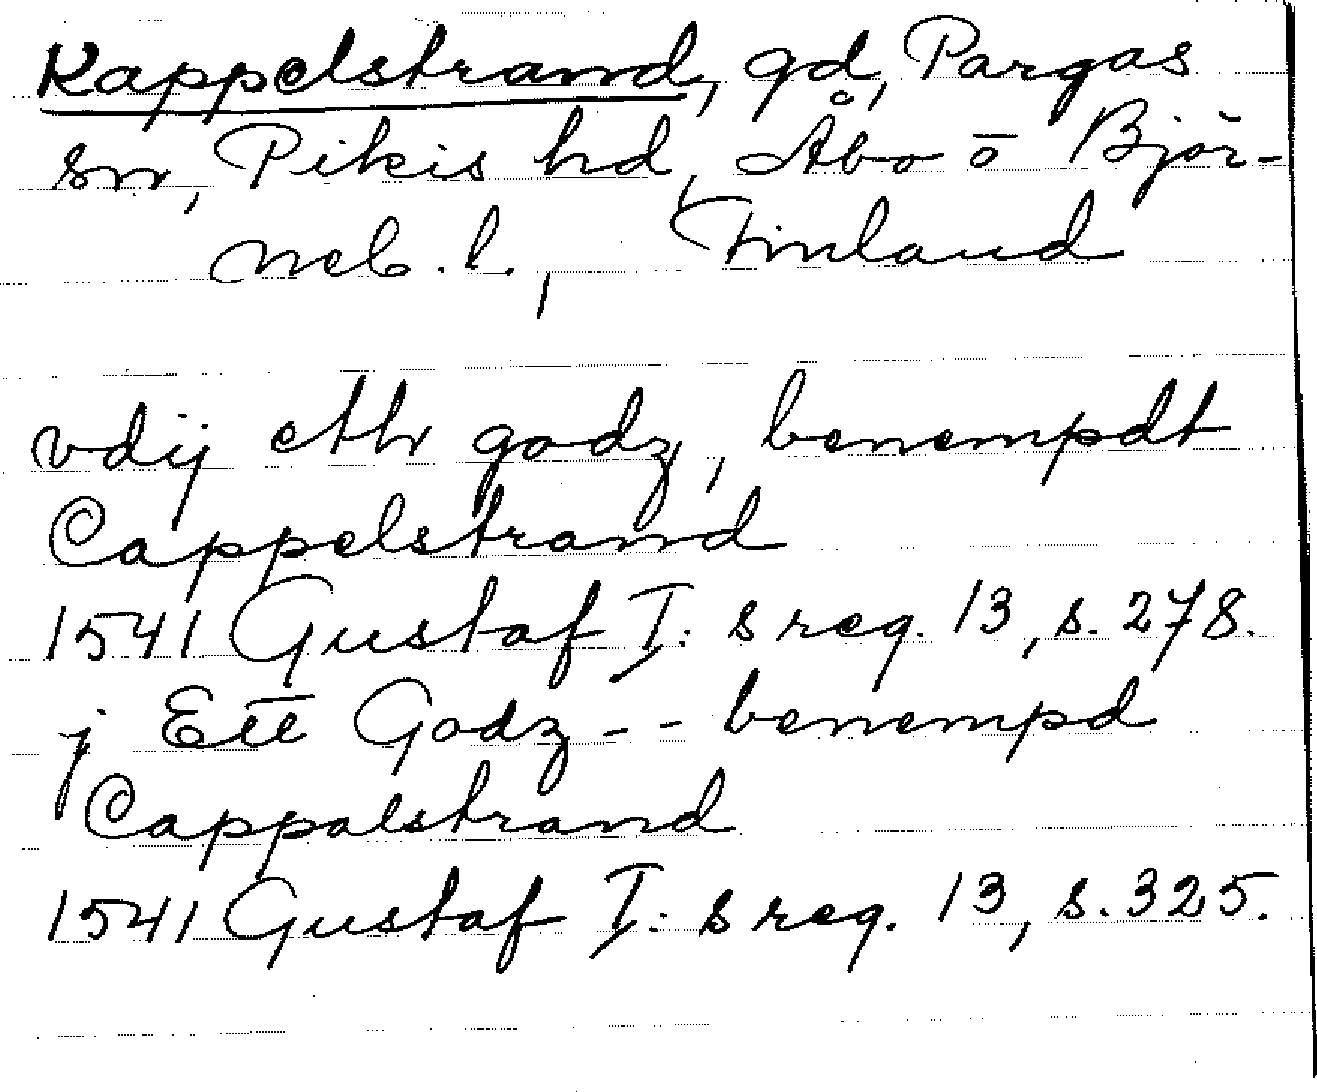 Kappelstrand, gd, Pargas
sn, Pikis hd, Åbo o Björ-
neb. l., Finland
vdij ethr godz, benempdt
Cappelstrand
1541 Gustaf I:s reg. 13, s. 278.
j Ett Godz - - benempd
Cappalstrand
1541 Gustaf I:s reg. 13, s. 325.